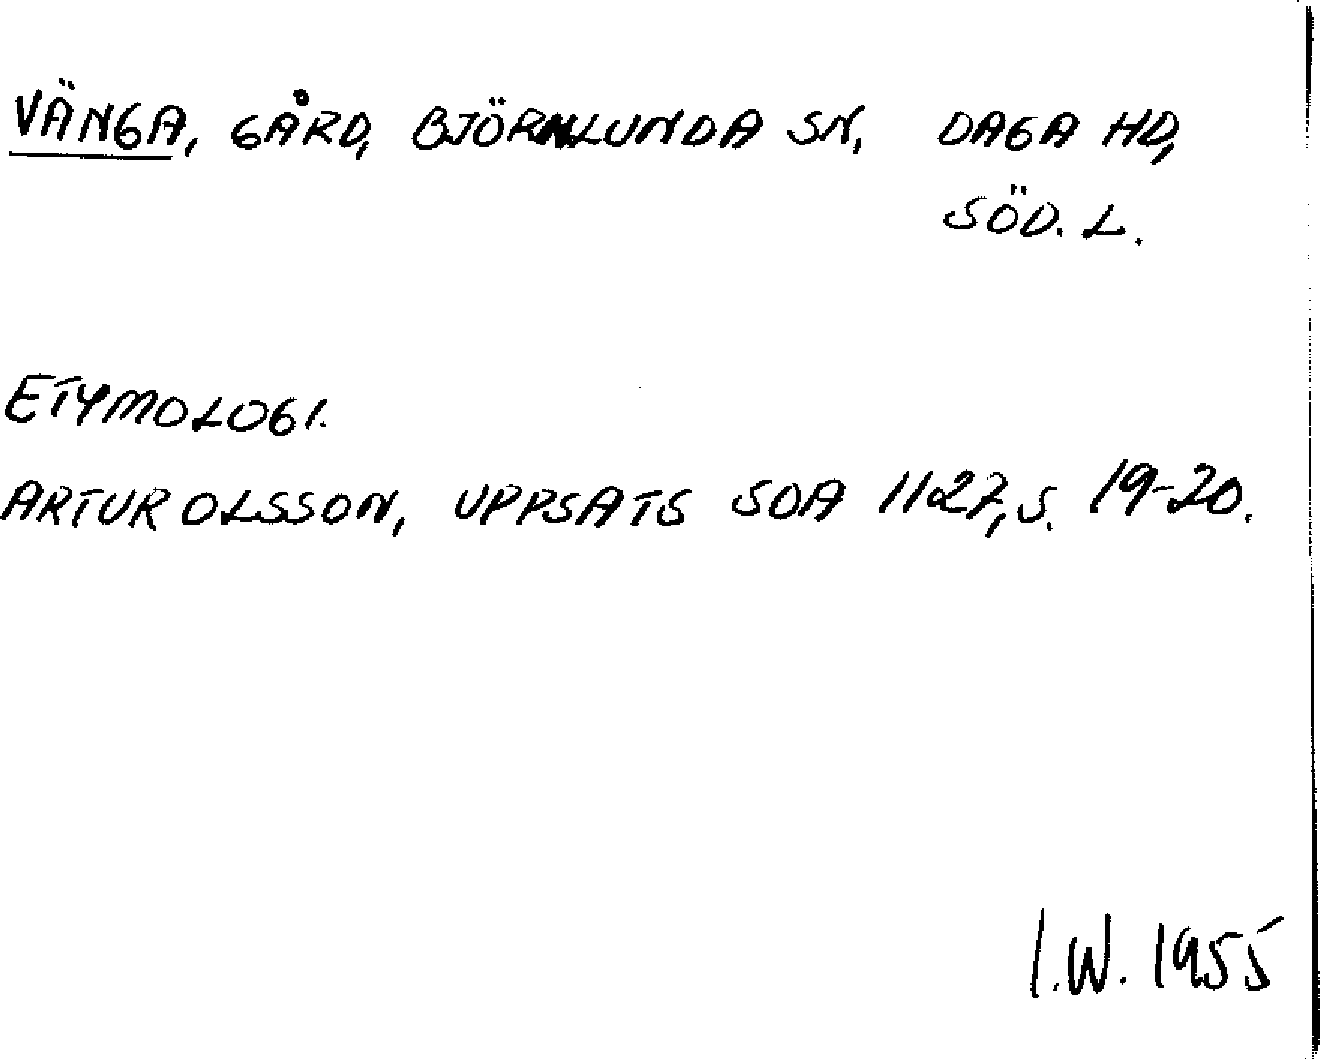 VÄNGA, GÅRD, BJÖRNLUNDA SN, DAGA HD,
SÖD. L.
ETYMOLOGI.
ARTUR OLSSON, UPPSATS SOA 1127, S. 19-20.
I.W. 1955